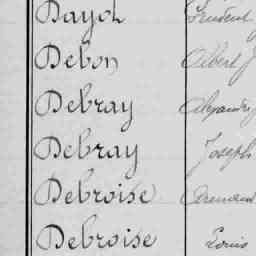 Dayot Prudent
Debon Albert J
Debray Alexandre
Debray Joseph
Debroise
Debroise Louis